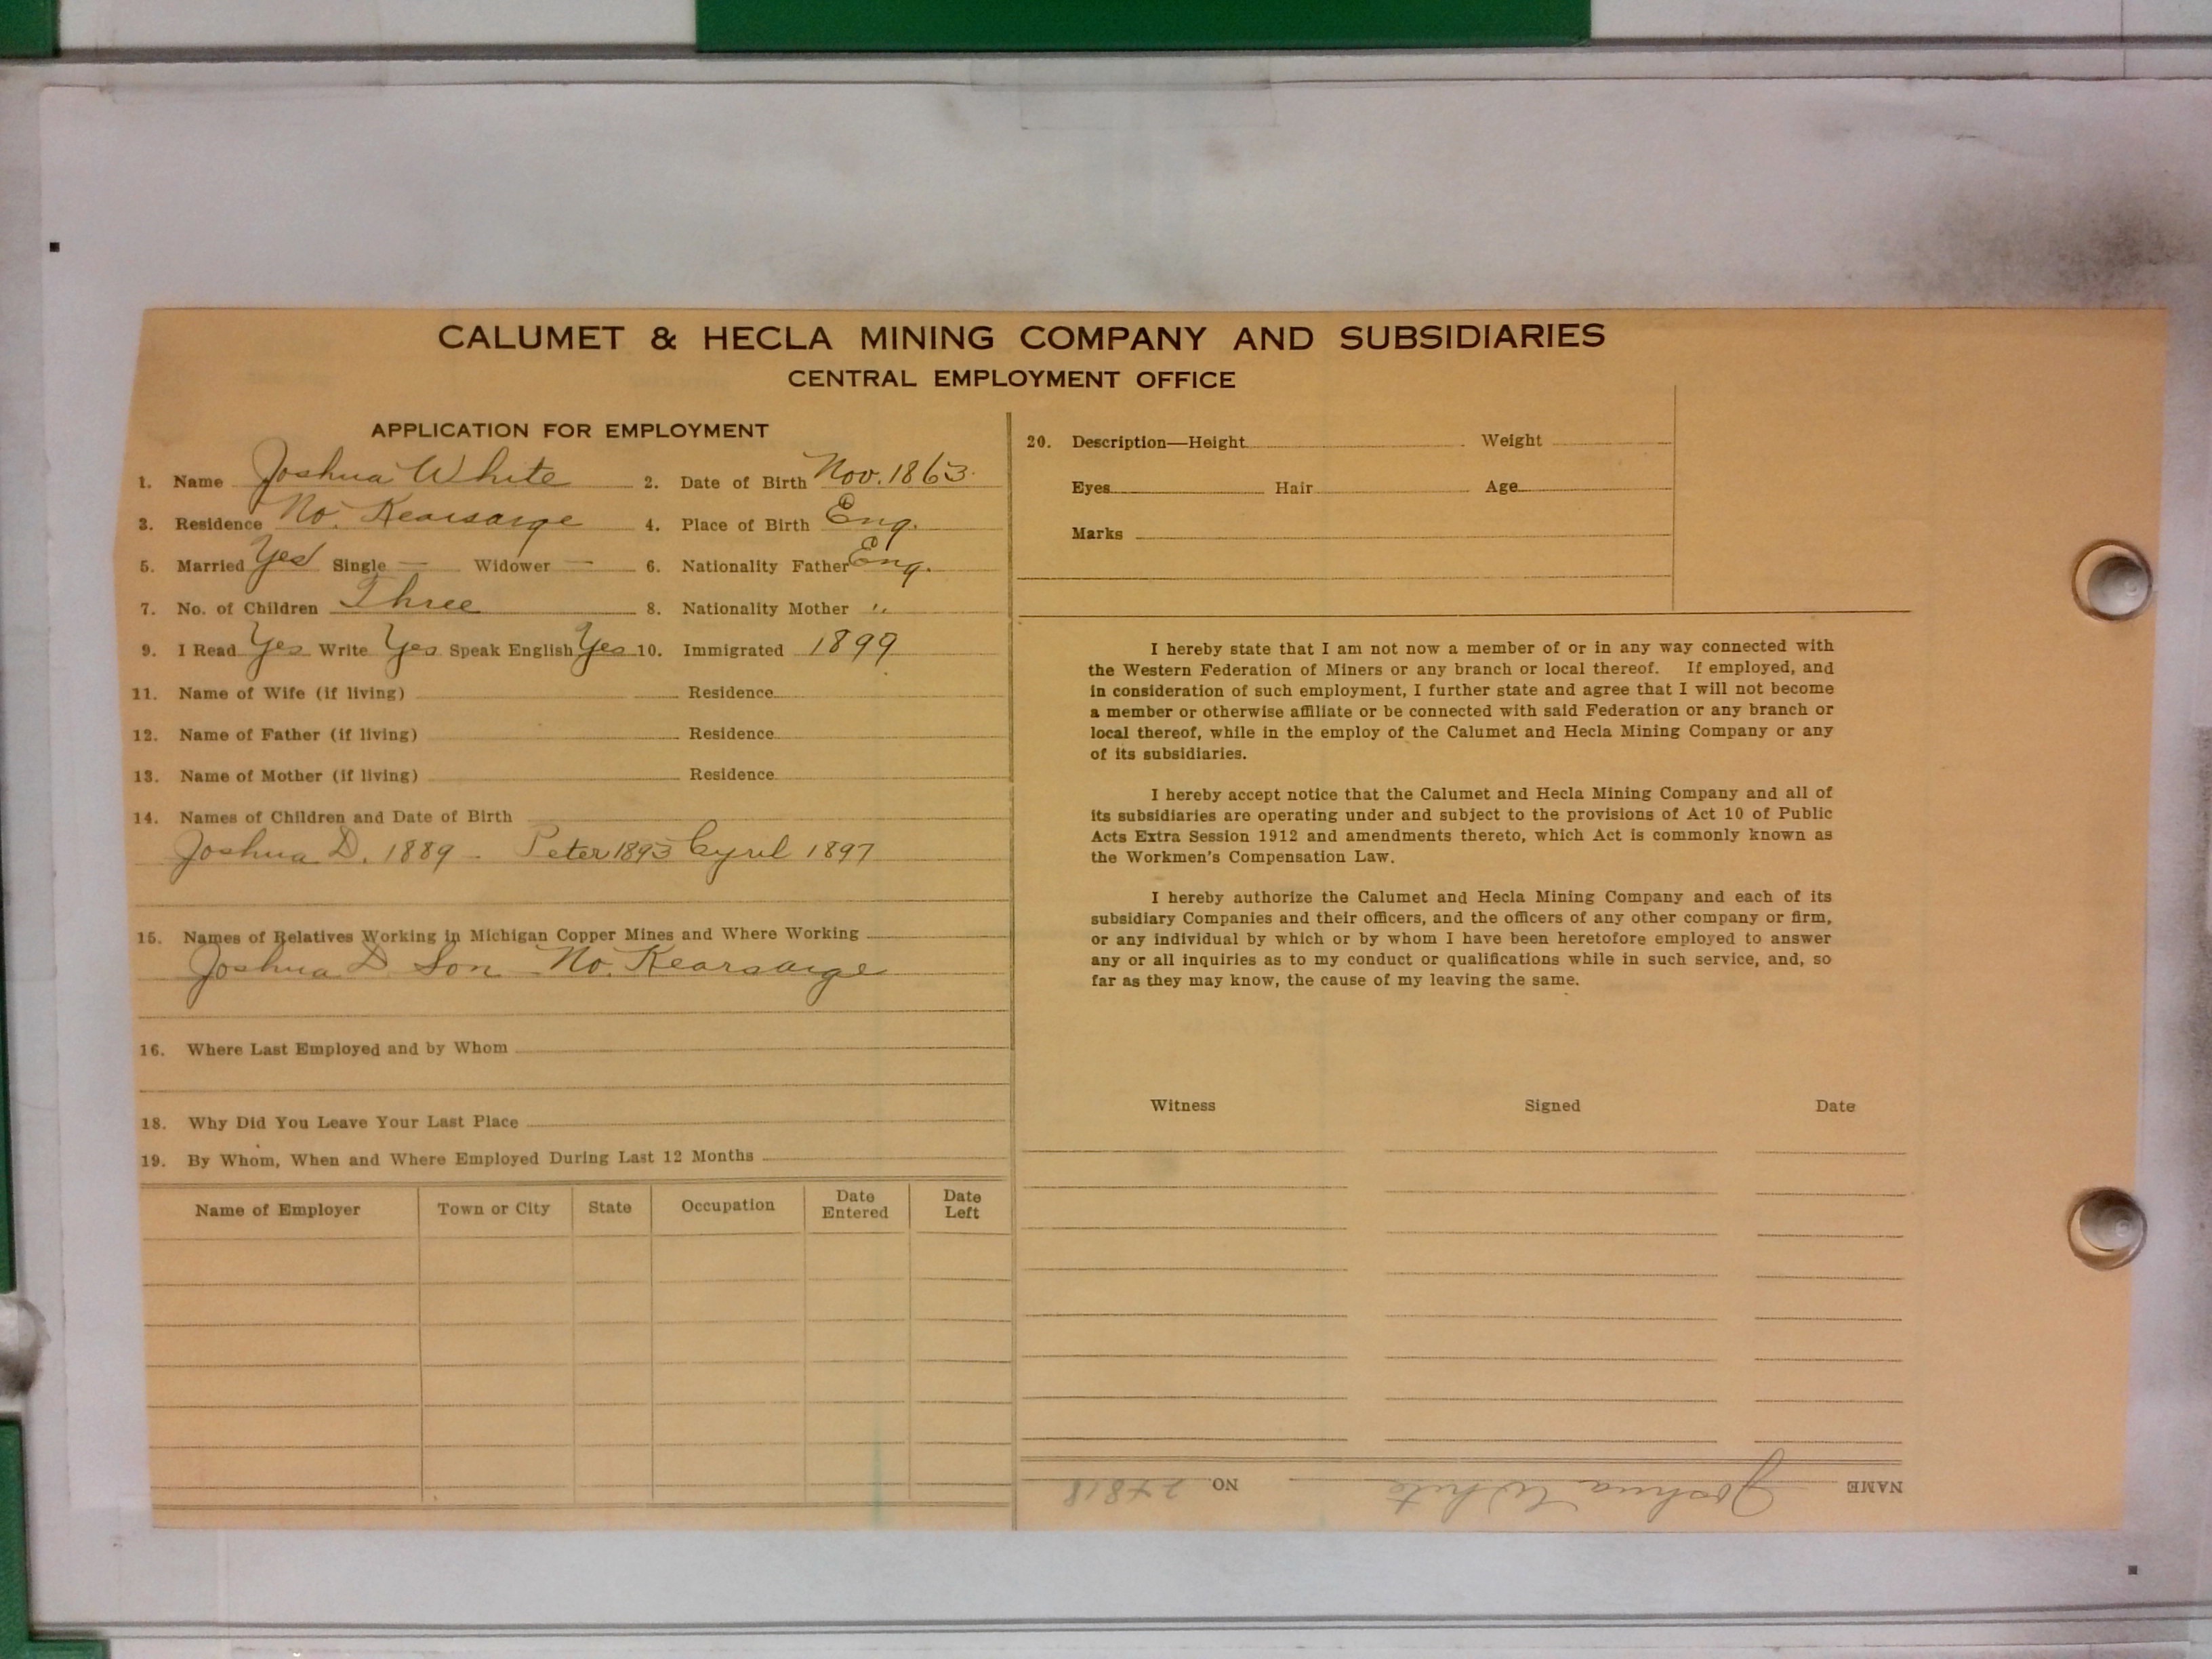 CALUMET & HECLA MINING COMPANY AND SUBSIDIARIES
CENTRAL EMPLOYMENT OFFICE
APPLICATION FOR EMPLOYMENT
1. Name Joshua White 2. Date of Birth Nov. 1863
3. Residence No. Kearsarge 4. Place of Birth Eng.
5. Married Yes Single — Widower — 6. Nationality Father Eng.
7. No. of Children Three 8. Nationality Mother "
9. I Read Yes Write Yes Speak English Yes 10. Immigrated 1899
11. Name of Wife (if living) Residence
12. Name of Father (if living) Residence
13. Name of Mother (if living) Residence
14. Names of Children and Date of Birth
Joshua D. 1889 - Peter 1893 Cyril 1897
15. Names of Relatives Working in Michigan Copper Mines and Where Working
Joshua D Son No. Kearsarge
16. Where Last Employed and by Whom
18. Why Did You Leave Your Last Place
19. By Whom, When and Where Employed During Last 12 Months
Name of Employer Town or City State Occupation Date Entered Date Left
20. Description—Height Weight
Eyes Hair Age
Marks
I hereby state that I am not now a member of or in any way connected with
the Western Federation of Miners or any branch or local thereof. If employed, and
in consideration of such employment, I further state and agree that I will not become
a member or otherwise affiliate or be connected with said Federation or any branch or
local thereof, while in the employ of the Calumet and Hecla Mining Company or any
of its subsidiaries.
I hereby accept notice that the Calumet and Hecla Mining Company and all of
its subsidiaries are operating under and subject to the provisions of Act 10 of Public
Acts Extra Session 1912 and amendments thereto, which Act is commonly known as
the Workmen's Compensation Law.
I hereby authorize the Calumet and Hecla Mining Company and each of its
subsidiary Companies and their officers, and the officers of any other company or firm,
or any individual by which or by whom I have been heretofore employed to answer
any or all inquiries as to my conduct or qualifications while in such service, and, so
far as they may know, the cause of my leaving the same.
Witness Signed Date
NAME Joshua White NO. 24818